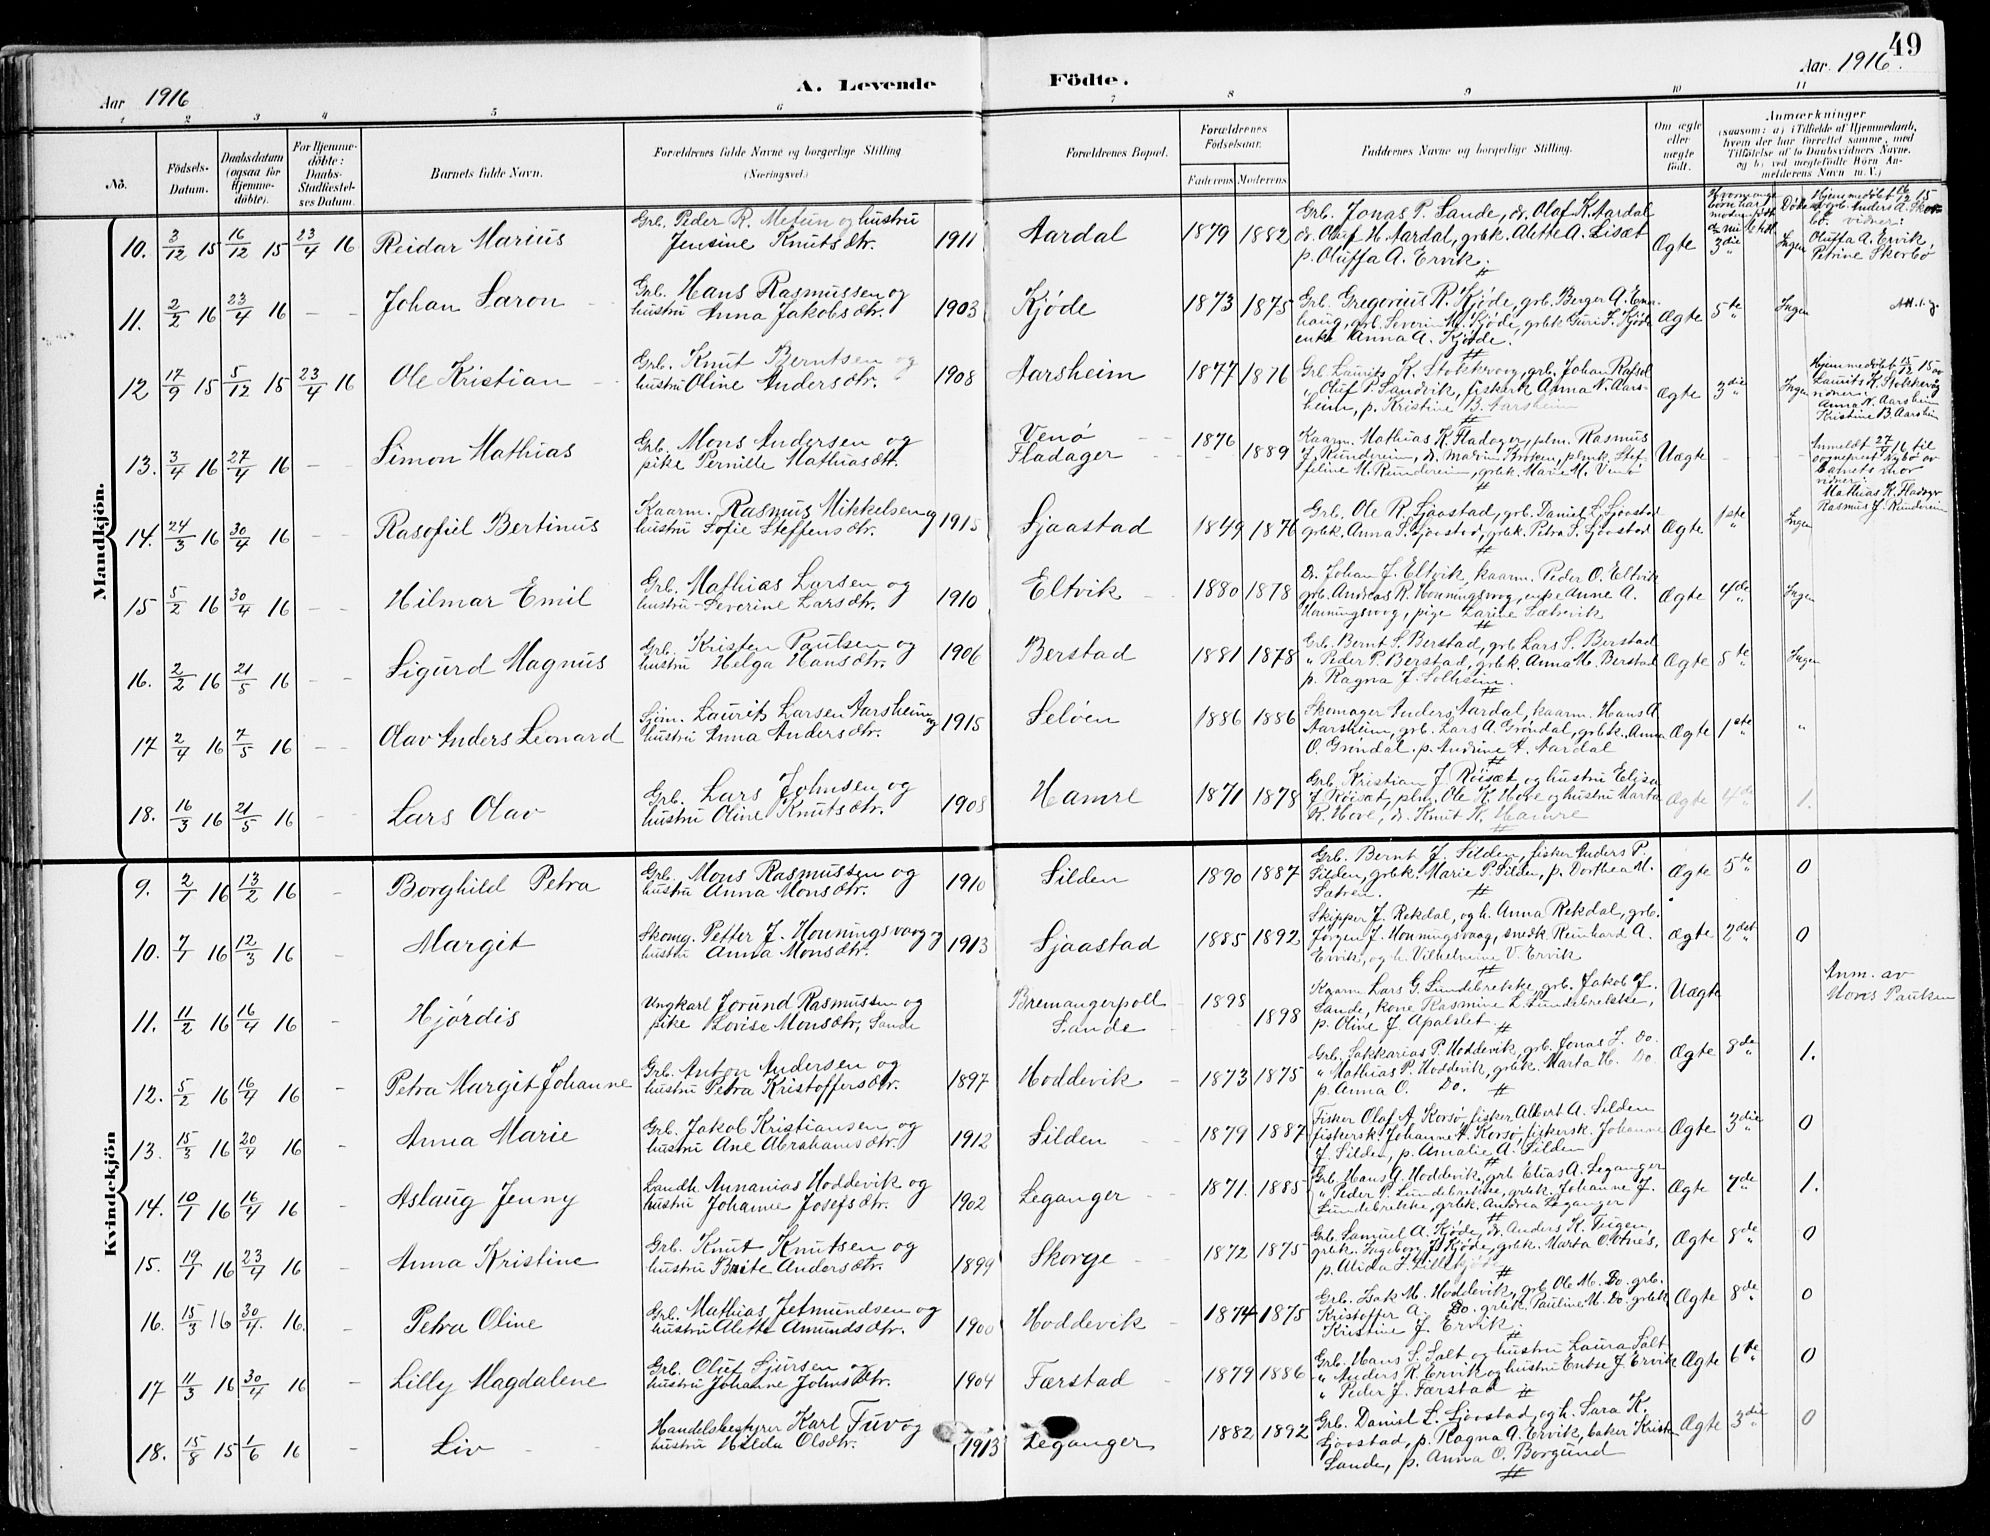 49
Aar 1916
A. Levende Födte.
Aar 1916.
1 2 3 4 5 6 7 8 9 10 11
No.
Födsels-Datum.
Daabsdatum (ogsaa for Hjemme-döbte).
For Hjemme-döbte: Daabs-Stadfæstel-ses Datum.
Barnets fulde Navn.
Forældrenes fulde Navne og borgerlige Stilling (Næringsvei.)
Forældrenes Bopæl.
Forældrenes Födselsaar.
Faderens Moderens
Faddernes Navne og borgerlige Stilling.
Om ægte eller uægte født.
Anmærkninger
(saasom: a) i Tilfælde af Hjemmedaab, hvem der har forrettet samme, med Tilföielse af to Daabsvidners Navne, og b) ved uægtefödte Börn An-melderens Navn m. V.)
Mandkjön.
10. 3/12 15 16/12 15 23/4 16 Reidar Marius
Grb. Peder R. Mefun og hustru
Jensine Knutsdtr. 1911 Aardal 1879 1882
Grb. Jonas P. Sande, dr. Olaf K. Aardal
dr. Oluf H. Aardal, grbk. Alette A. Lisæt
p. Oluffa A. Ervik. Ægte 3die Ingen
Hjemmedøbt 16/12 15
vidner:
Oluffa A. Ervik,
Petrine Skorbø
11. 2/2 16 23/4 16 Johan Saron
Grb. Hans Rasmussen og
hustru Anna Jakobsdtr. 1903 Kjøde 1873 1875
Grb. Gregorius R. Kjøde, grb. Berger A. Ena-
haug, grb. Severin M. Kjøde, grbk. Guri I. Kjøde
enke Anna A. Kjøde. Ægte 5te Ingen
12 17/9 15 5/12 15 23/4 16 Ole Kristian
Grb. Knut Berntsen og
hustru Oline Andersdtr. 1908 Aarsheim 1877 1876
Grb. Laurits K. Stokkevaag, grb. Johan Refsel
" Oluf P. Sandvik, fiskerk. Anna N. Aars-
heim, p. Kristine B. Aarsheim Ægte 3die Ingen
Laurits K. Stokkevåg
vidner:
Anna N. Aarsheim
Kristine B. Aarsheim
13. 3/4 16 27/4 16 Simon Mathias
Grb. Mons Andersen og
pike Pernille Mathiasdtr. Venø
Fladager 1876 1889
Kaarm. Mathias K. Fladager, plm. Rasmus
J. Runderein, d. Malvin Kroken, plmk. Stef-
feline M. Runderein, grbk. Marie M. Venø Uægte
Anmeldt 27/4 16 til
sogneprest Nybø av
barnets mor
vidner:
Mathias K. Fladager
Rasmus J. Runderein
14. 24/3 16 30/4 16 Rasofiel Bertinus
Kaarm. Rasmus Mikkelsen og
hustru Sofie Steffensdtr. 1915 Sjaastad 1849 1876
Grb. Ole R. Sjaastad, grb. Daniel L. Sjåstad
grbk. Anna S. Sjåstad, grbk. Petra S. Sjåstad Ægte 1ste Ingen
15 5/2 16 30/4 16 Hilmar Emil
Grb. Mathias Larsen og
hustru Severine Larsdtr. 1910 Eltvik 1880 1878
Dr. Johan J. Eltvik, kaarm. Peder O. Eltvik
grb. Andreas R. Honningsvog, enke Anne A.
Honningsvog, pige Larine Sætrevik Ægte 4de Ingen
16. 2/2 16 21/5 16 Sigurd Magnus
Grb. Kristen Paulsen og
hustru Helga Hansdtr. 1906 Berstad 1881 1878
Grb. Bernt S. Berstad, grb Lars S. Berstad
" Peder P. Berstad, grbk. Anna M. Berstad
p. Ragna J. Solheim. Ægte 5te Ingen
17 2/4 16 7/5 16 Olav Anders Leonard
Sjøm. Laurits Larsen Aarsheim og
hustru Anna Andersdtr. 1915 Seløen 1886 1886
Skomager Anders Aardal, kaarm. Hans A
Aarsheim, grb. Lars A. Grøndal, grbk. Anna
O. Grøndal, p. Andrine A. Aardal Ægte 1ste "
18. 16/3 16 21/5 16 Lars Olav
Grb. Lars Johnsen og
hustru Oline Knutsdtr. 1908 Hamre 1871 1878
Grb. Kristian J. Røisæt og hustru Elisa
J. Røisæt, plm. Ole K. Hove og hustru Marta
R. Hove, d. Knut K. Hamre Ægte 4de 1.
Kvindekjön
9. 2/1 16 13/2 16 Borghild Petra
Grb. Mons Rasmussen og
hustru Anna Monsdtr. 1910 Silden 1890 1887
Grb. Bernt J. Silden, fisker Anders P.
Silden, grbk. Marie P. Silden, p. Dorthea M.
Sætren. Ægte 5te 0
10. 7/1 16 12/3 16 Margit
Skomg. Petter J. Honningsvaag og
hustru Anna Monsdtr. 1913 Sjaastad 1885 1892
Skipper J. Rekdal, og h. Anna Rekdal, grb.
Jørgen J. Honningsvaag, snedk Reinhard A.
Ervik, og h. Vilhelmine V. Ervik Ægte 2det 0
11. 11/2 16 16/4 16 Hjørdis
Ungkarl Jorund Rasmussen og
pike Lovise Monsdtr, Sande Bremangerpoll
Sande 1898 1898
Kaarm Lars G. Lundebrekke, grb. Jakob J.
Sande, kone Rasmine L. Lundebrekke,
p. Oline J. Apalset Uægte
Anm. av
Mons Paulsen
12. 5/2 16 16/4 16 Petra Margit Johanne
Grb. Anton Andersen og
hustru Petra Kristoffersdtr. 1897 Hoddevik 1873 1875
Grb. Sakkarias P. Hoddevik, grb. Jonas J. Do.
" Mathias P. Hoddevik, grbk. Marta H. Do
p. Anna O. Do. Ægte 8de 1.
13. 15/3 16 20/4 16 Anna Marie
Grb. Jakob Kristiansen og
hustru Ane Abrahamsdtr. 1912 Silden 1879 1887
Fisker Olaf A. Korsø, fisker Albert A. Silden
fiskersk. Johanne A. Korsø, fiskersk. Johanne
J. Silden, p. Amalie A. Silden Ægte 3die 0
14. 10/1 16 16/4 16 Aslaug Jenny
Landh. Annanias Hoddevik og
hustru Johanne Josefsdtr. 1902 Leganger 1871. 1885
Grb. Hans G. Hoddevik, grb Elias A. Leganger
" Peder P. Lundebrekke, grbk. Johanne J.
Lundebrekke, grbk. Andrea Leganger Ægte 7de 1.
15. 19/1 16 23/4 16 Anna Kristine
Grb. Knut Knutsen og
hustru Brite Andersdtr. 1899 Skorge 1872 1875
Grb. Samuel A. Kjøde, dr. Anders K. Tugen,
grbk. Ingeborg J. Kjøde, grbk. Marta O. Otnes,
p. Alida J. Lillekjøde Ægte 8de 0
16. 15/3 16 30/4. 16. Petra Oline
Grb. Mathias Jetmundsen og
hustru Alette Amundsdtr. 1900 Hoddevik 1874 1875
Grb. Isak M. Hoddevik, grb Ole M. Do. grb.
Kristoffer A. Do. grbk. Pauline M. Do. grbk
Kristine J. Ervik. Ægte 8de 0
17 11/3 16 30/4 16 Lilly Magdalene
Grb. Oluf Sjursen og
hustru Johanne Johnsdtr. 1904 Færstad 1879 1886
Grb. Hans S. Salt og hustru Laura Salt
" Anders K. Ervik og hustru Entse J. Ervik
" Peder J. Færstad Ægte 6te 0
18. 15/8 15 1/6 16 Liv
Handelsbestyrer Karl Tuv og
hustru Hilda Olsdtr. 1913 Leganger 1882 1892
Grb. Daniel L. Sjåstad, og h. Sara K.
Sjåstad, p. Ragna A. Ervik, baker Krist.
Sande, p. Anna O. Borgund Ægte 3die 0